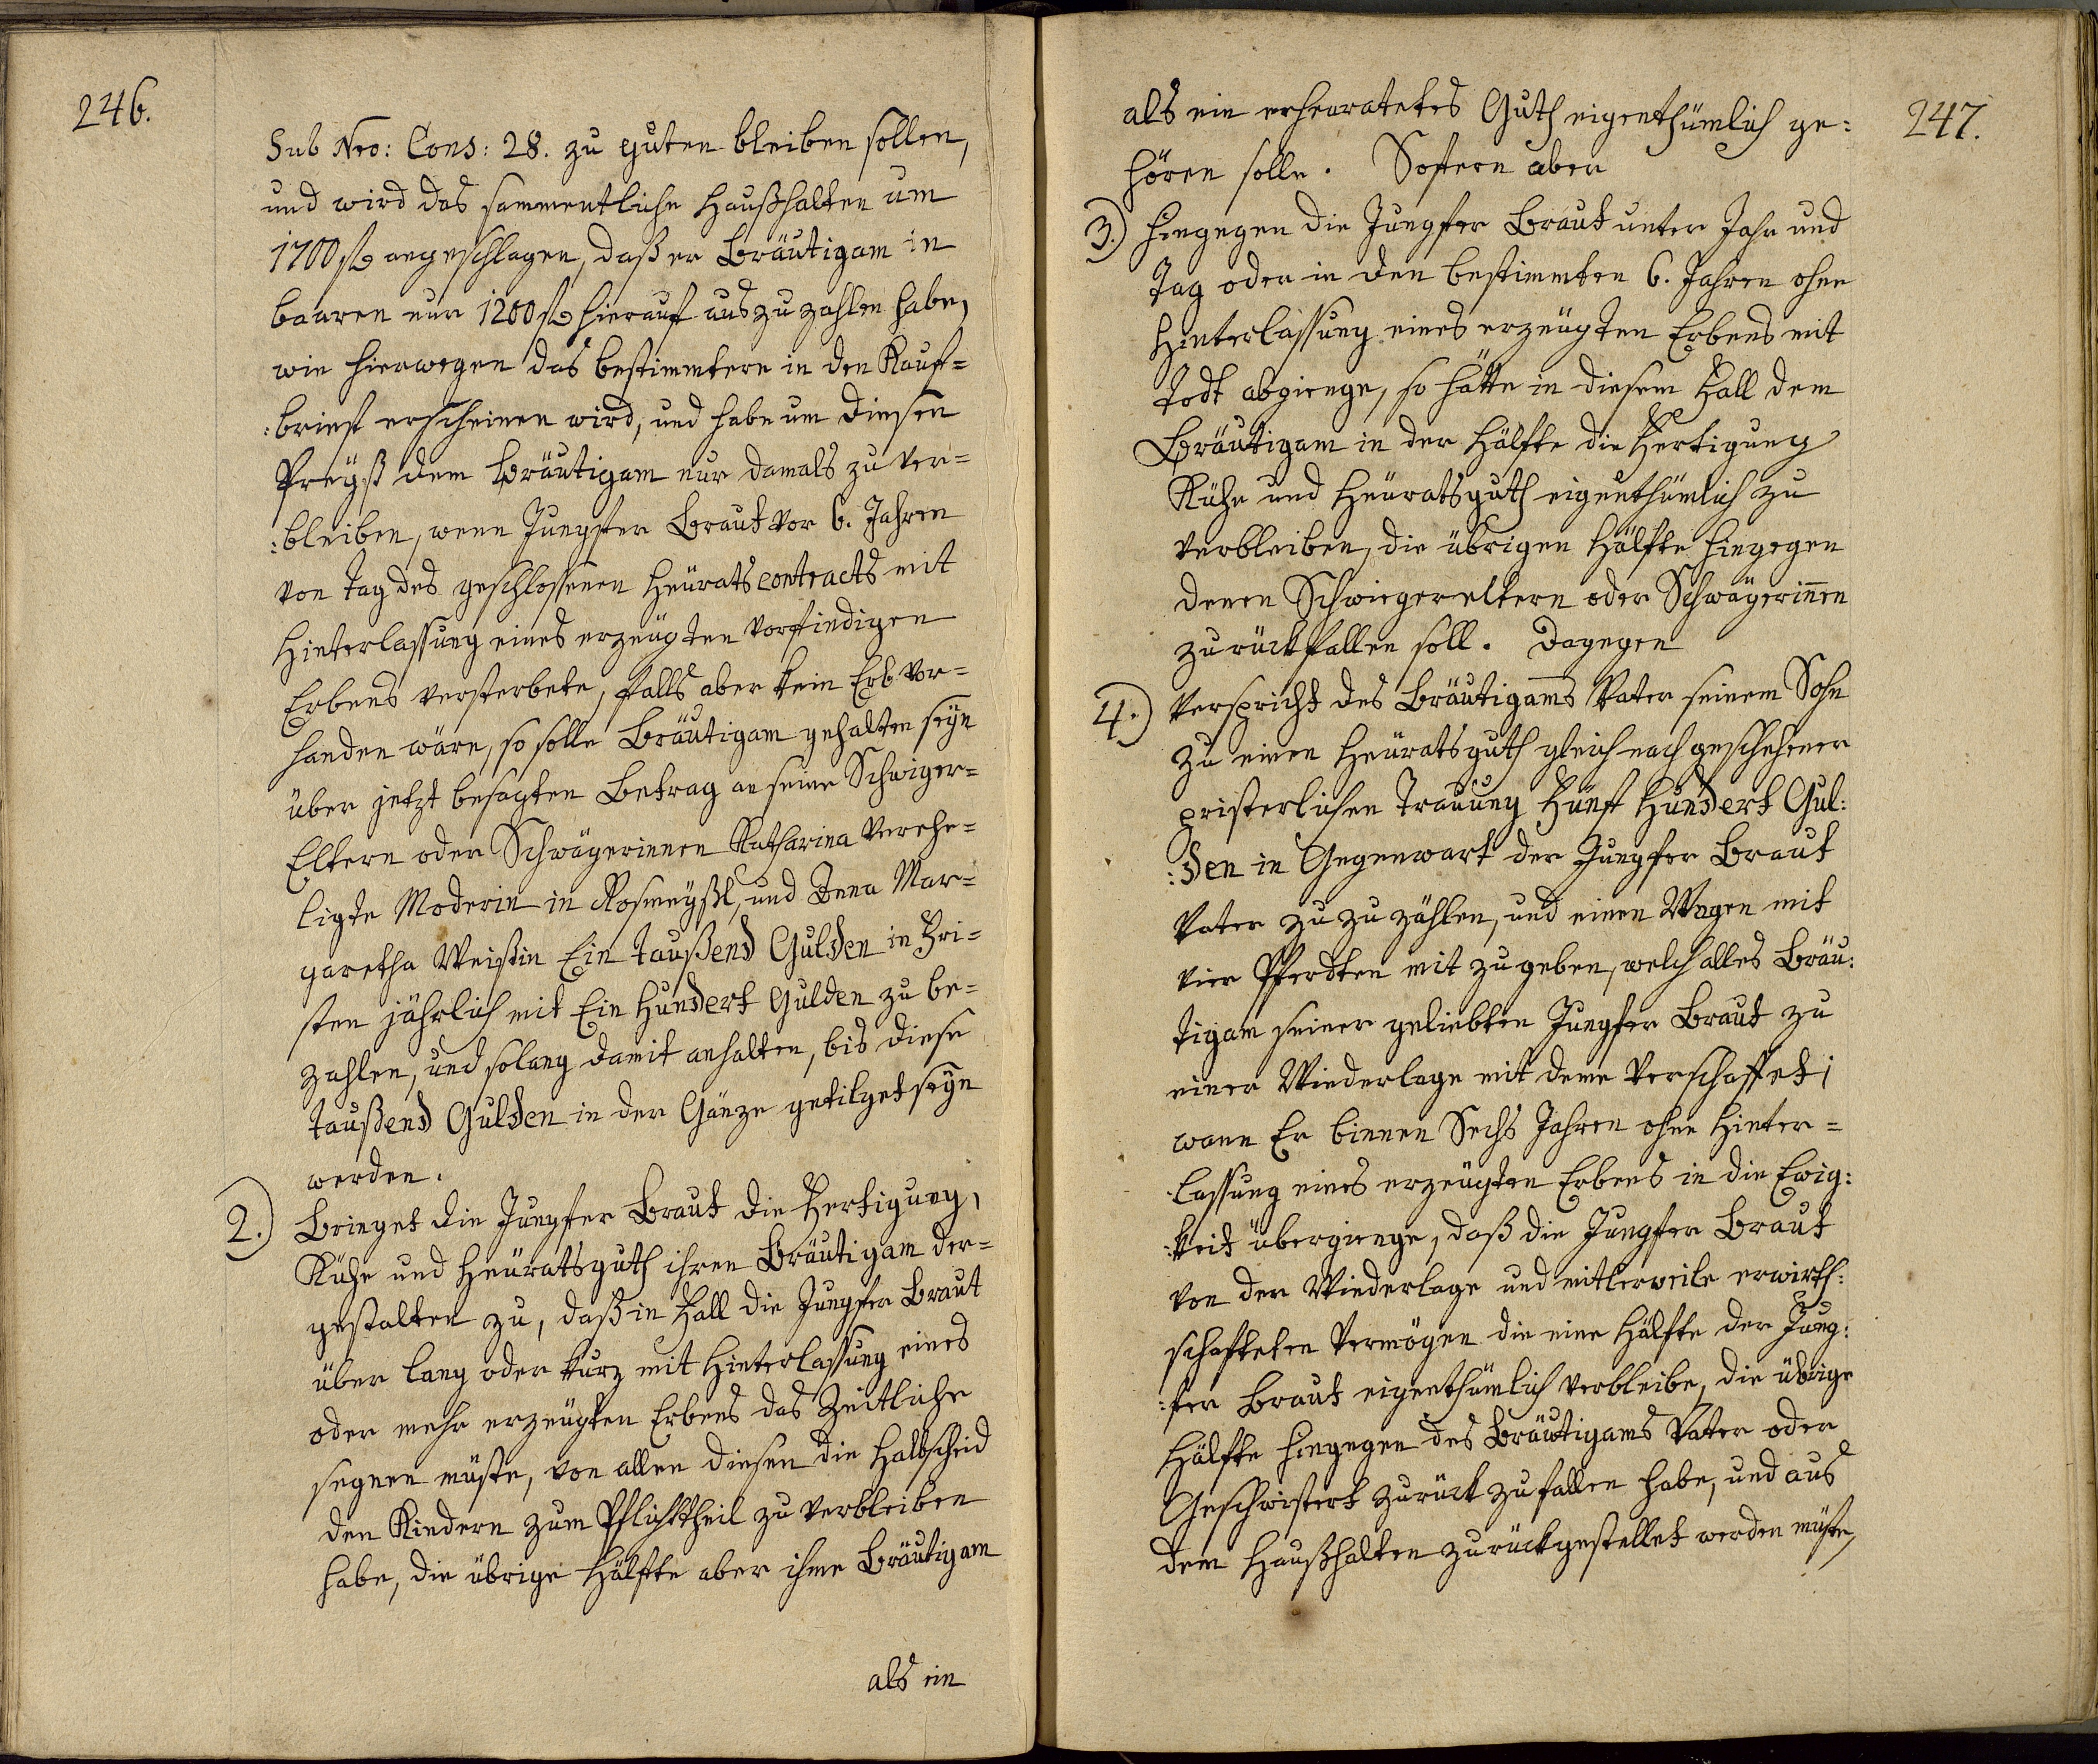 246.
Sub Nro: Cons: 28. zu guten bleiben sollen,
und wird das sammentliche Haußhalten um
1700 f. angeschlagen, daß er Bräutigam in
baaren nur 1200 f. hierauf auszuzahlen habe,
wie hierwegen das bestimmtere in den Kauf=
:brief erscheinen wird, und habe um diesen
Preyß dem Bräutigam nur damals zu ver=
:bleiben, wenn Jungfer Braut vor 6. Jahren
von Tag des geschlossenen Heurats contracts mit
Hinterlassung eines erzeugten vorfindigen
Erbens versterbete, falls aber kein Erb vor=
handen wäre, so solle Bräutigam gehalten seyn
über jetzt besagten Betrag an seine Schwiger=
Eltern oder Schwägerinnen Katharina verehe=
ligte Moderin in Rosmeyßl, und Anna Mar=
garetha Weißin Ein taußend Gulden in Fri=
sten jährlich mit Ein Hundert Gulden zu be=
zahlen, und solang damit anhalten, bis diese
taußend Gulden in der Gänze getilget seyn
werden.
2.) Bringet die Jungfer Braut die Fertigung,
Kühe und Heuratsguth ihren Bräutigam der=
gestalten zu, daß in Fall die Jungfer Braut
über lang oder kurz mit Hinterlassung eines
oder mehr erzeugten Erbens das Zeitliche
segnen müste, von allen diesen die Halbscheid
den Kindern zum Pflichttheil zu verbleiben
habe, die übrige Hälfte aber ihme Bräutigam
als ein
247.
als ein erheuratetes Guth eigenthümlich ge:
hören solle. Soferen aber
3.) hingegen die Jungfer Braut unter Jahr und
Tag oder in den bestimmten 6. Jahren ohne
Hinterlassung eines erzeugten Erbens mit
Todt abgienge, so hätte in diesem Fall dem
Bräutigam in der Hälfte die Fertigung
Kühe und Heuratsguth eigenthümlich zu
verbleiben, die übrigen Hälfte hingegen
denen Schwiegereltern oder Schwägerinnen
zurückfallen soll. Dagegen
4.) verspricht des Bräutigams Vater seinem Sohn
zu einen Heuratsguth gleich nach geschehener
pristerlichen Trauung Fünf Hundert Gul:
:den in Gegenwart der Jungfer Braut
Vater zu zu zählen, und einen Wagen mit
vier Pferdten mit zu geben, welch alles Bräu:
tigam seiner geliebten Jungfer Braut zu
einer Wiederlage mit deme verschaffet;
wann Er binnen Sechs Jahren ohne Hinter=
lassung eines erzeugten Erbens in die Ewig:
:keit übergienge, daß die Jungfer Braut
von der Wiederlage und mitlerweile erwirth:
schafteten Vermögen die eine Hälfte der Jung:
:fer Braut eigenthümlich verbleibe, die übrige
Hälfte hingegen des Bräutigams Vater oder
Geschwistert zurück zu fallen habe, und aus
dem Haußhalten zurückgestellet werden müste,